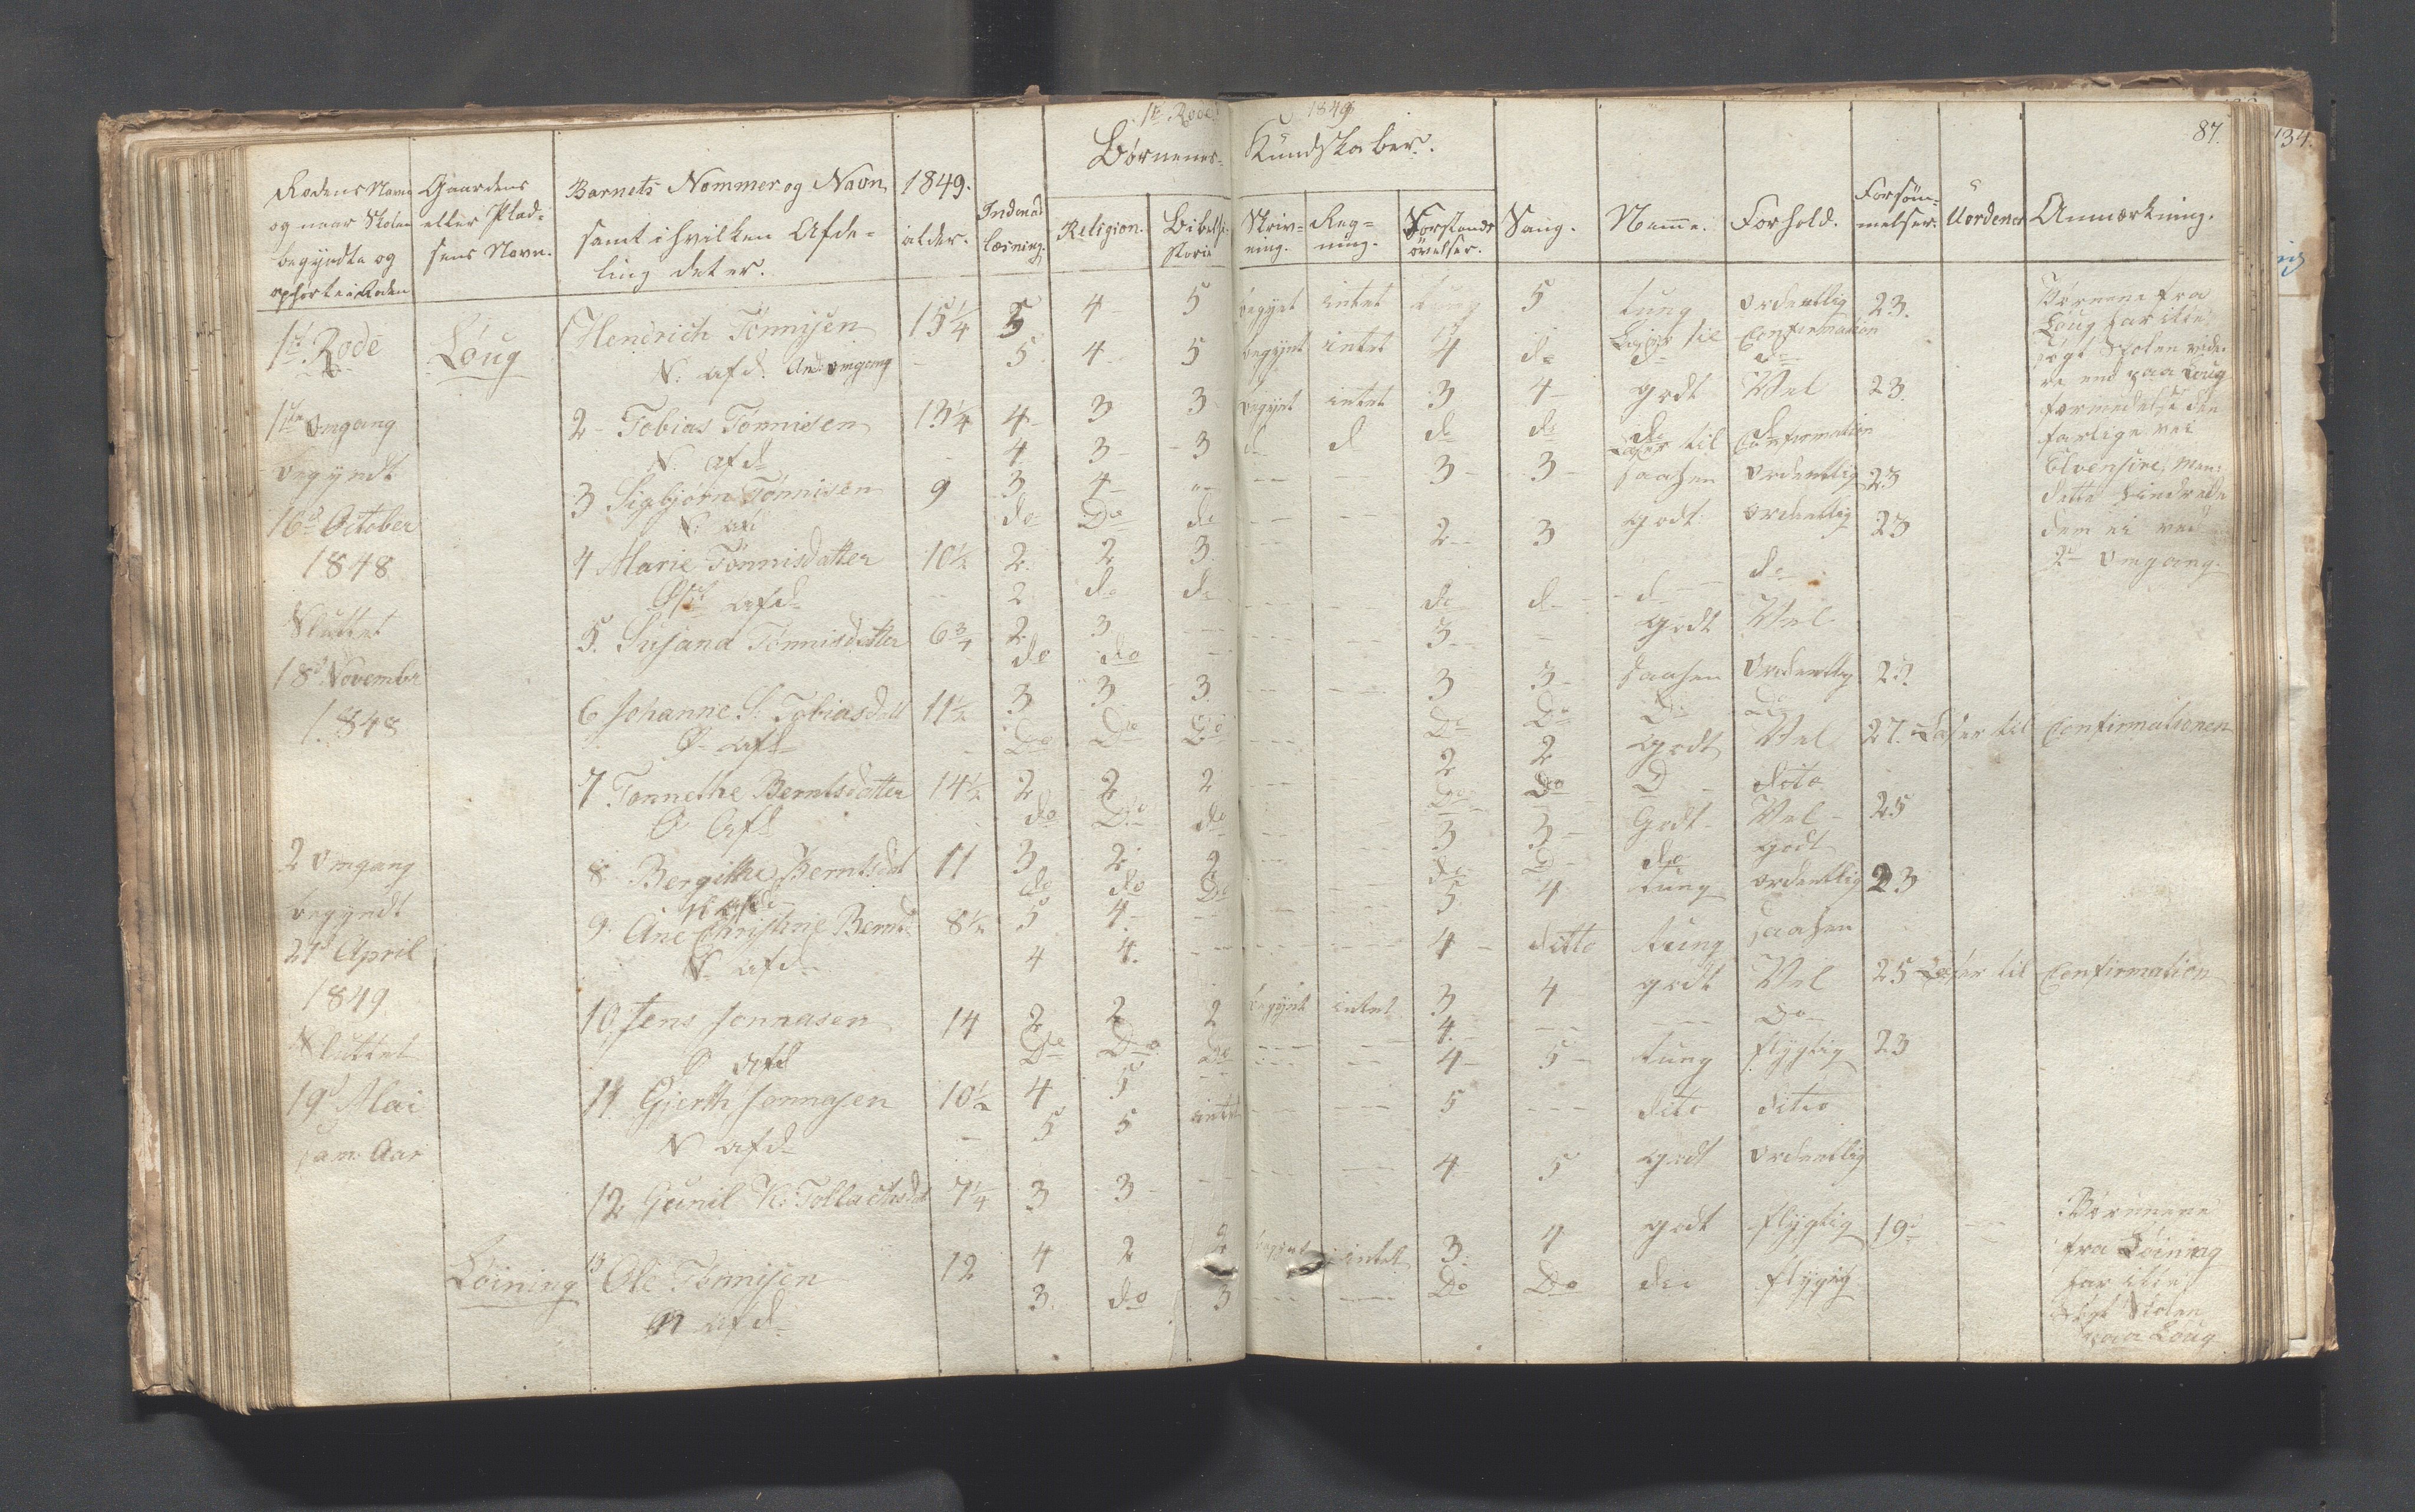 1te Rode 1849
87.
134.
Børnenes Kundskaber.
Rodens Navn og naar Skolen begyndte og ophørte i Roden
Gaardens eller Pladsens Navn.
Barnets Nommer og Navn samt i hvilken Afdeling det er.
1849. alder.
Indenadlæsning.
Religion.
Bibelhistorie
Skrivning.
Regning.
Forstandsøvelser.
Sang.
Nemme.
Forhold.
Forsømmelser.
Uordener
Anmærkning.
1te Rode Løug 1 Henrich Tønnisen 15 1/4 5 4 5 begynt intet tung 5 tung Ordentlig 23.
N. afd. And: omgang 5 4 5 begynt intet 4 do Læser til Confirmation
1ste Omgang 2 Tobias Tønnisen 13 1/4 4 3 3 begynt intet 3 4 godt Vel 23.
N. afd 4 3 3 d d do do do Læser til Confirmation
begyndt 3 Sigbjørn Tønnisen 9 3 4 3 3 saahen Ordentlig 23
16d October N. afd do Do do
1848 4 Marie Tønnisdatter 10 1/2 2 2 3 2 3 godt ordentlig 23
afd 2 do do do d d do
Sluttet 5. Susana Tønnisdatter 6 3/4 2 3 3 godt Vel
do do
18d Novembr 6 Johanne S: Tobiasdatt 11 1/2 3 3 3 3 3 saahen Ordentlig 23.
1848 Ø. afd Do Do Do Do Do Do Do
7 Tonnethe Berntsdatter 14 1/2 2 2 2 2 2 godt Vel 27. Læser til Confirmationen
Ø afd do Do do Do Do D dito
2 Omgang 8 Bergithe Berntsdat 11 3 2 2 3 3 Godt Vel 25
begyndt do do Do do D do godt
9. Ane Christine Bernts 8 1/2 5 4 5 4 tung ordentlig 23
21d April N. afd 4 4. 4 ditto tung saahen
1849 10 Jens Jonnasen 14 2 2 2 begynt intet 3 4 godt Vel 25 Læser til Confirmation
Sluttet Ø afd Do Do Do 4. Do
19d Mai 11 Gjerth Jonnasen 10 1/2 4 5 4 5 tung flygtig 23
sam: Aar N afd 5 5 intet 5 dito ditto
12 Gunil K: Tollachsdat 7 1/4 3 3 4 5 godt ordentlig
Løining 13 Ole Tønnisen 12 4 2 2 begynt intet 3. 4 godt flygtig 19
N afd 3. do 3 Do Do do flygtig
Børnene fra
Løug har ikke
søgt Skolen vide-
re end paa Løug
formedelst den
farlige vei
Elvensine, men
dette hindrede
dem ei ved
2de Omgang.
Børnene
fra Løining
har ikke
søgt Skolen
paa Løug